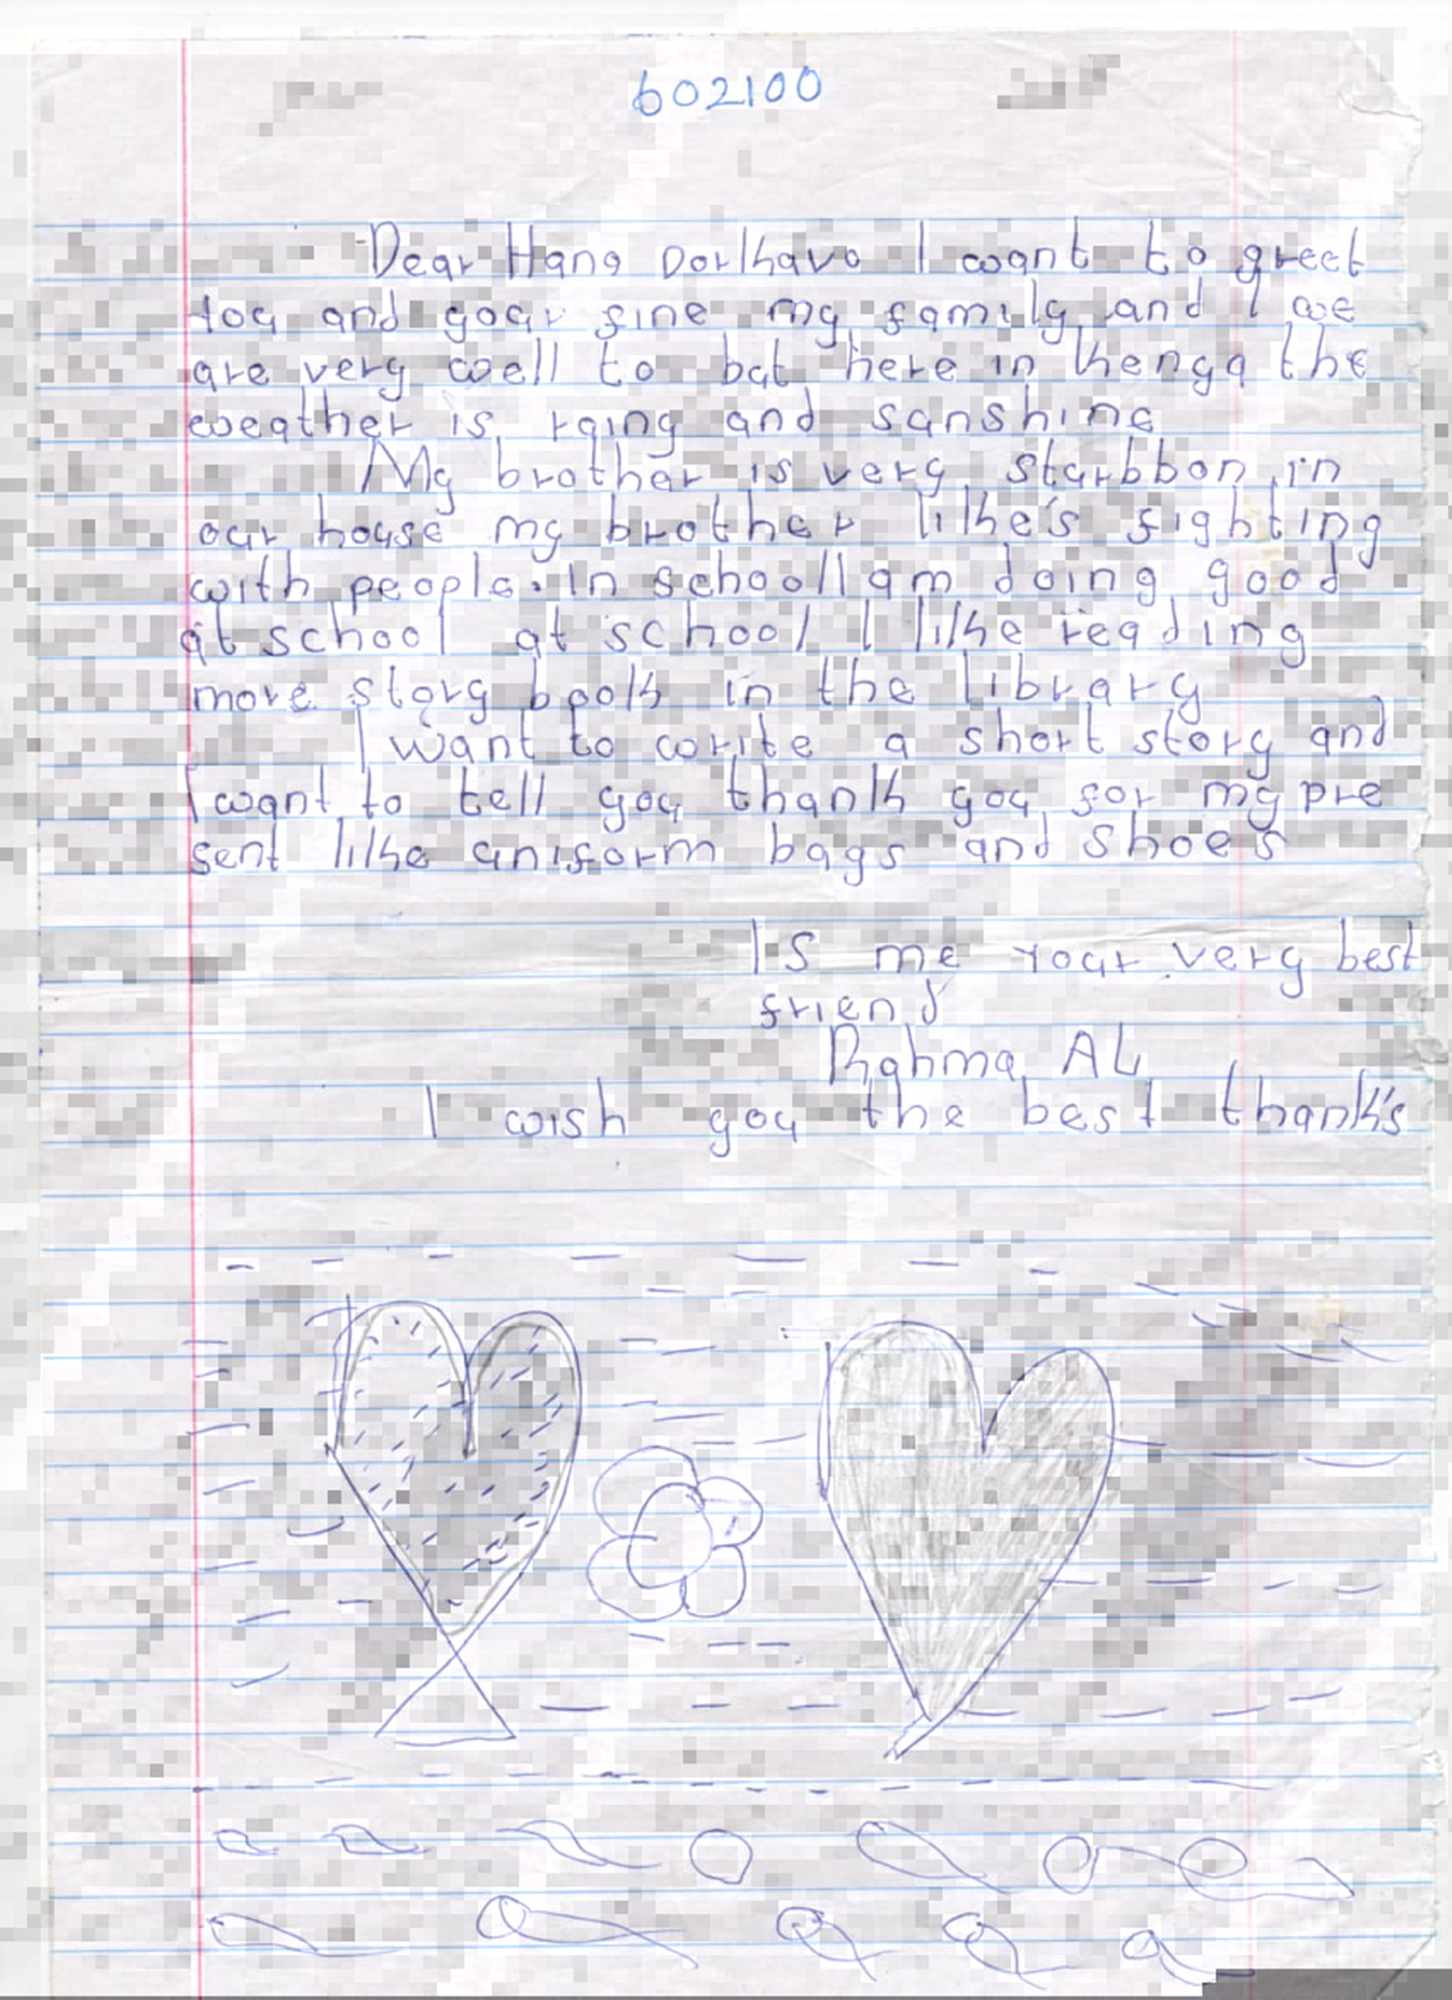 602100
Dear Hana Dorkavo I want to greet
you and your fine my family and I we
are very well to but here in kenya the
weather is raing and sunshine
My brother is very sturbbon in
our house my brother like's fighting
with people. In school I am doing good
at school at school I like reading
more story book in the library
I want to write a short story and
I want to tell you thank you for my pre
sent like uniform bags and shoes
Is me your very best
friend
Rahma AL
I wish you the best thank's